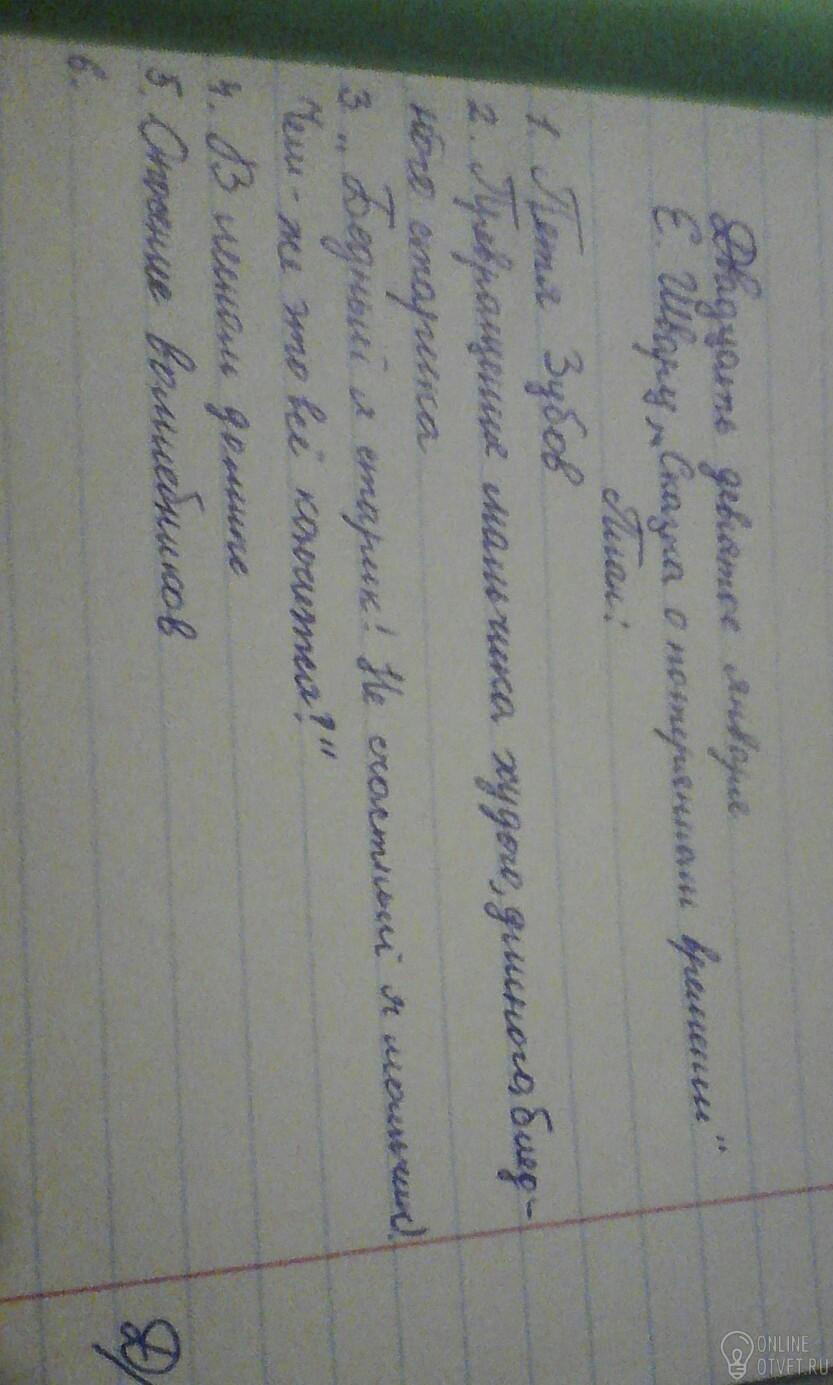 Двадцать девятое января
Е. Шварц „Сказка о потерянном времени"
План:
1. Петя Зубов
2. Превращение мальчика худого, длинного, блед-
ного старика
3. „Бедный я старик! Не счастный я мальчик!
Чем-же это всё кончится?"
4. В лесном домике
5. Спасение волшебников
6.
Д/
ONLINE
OTVET.RU